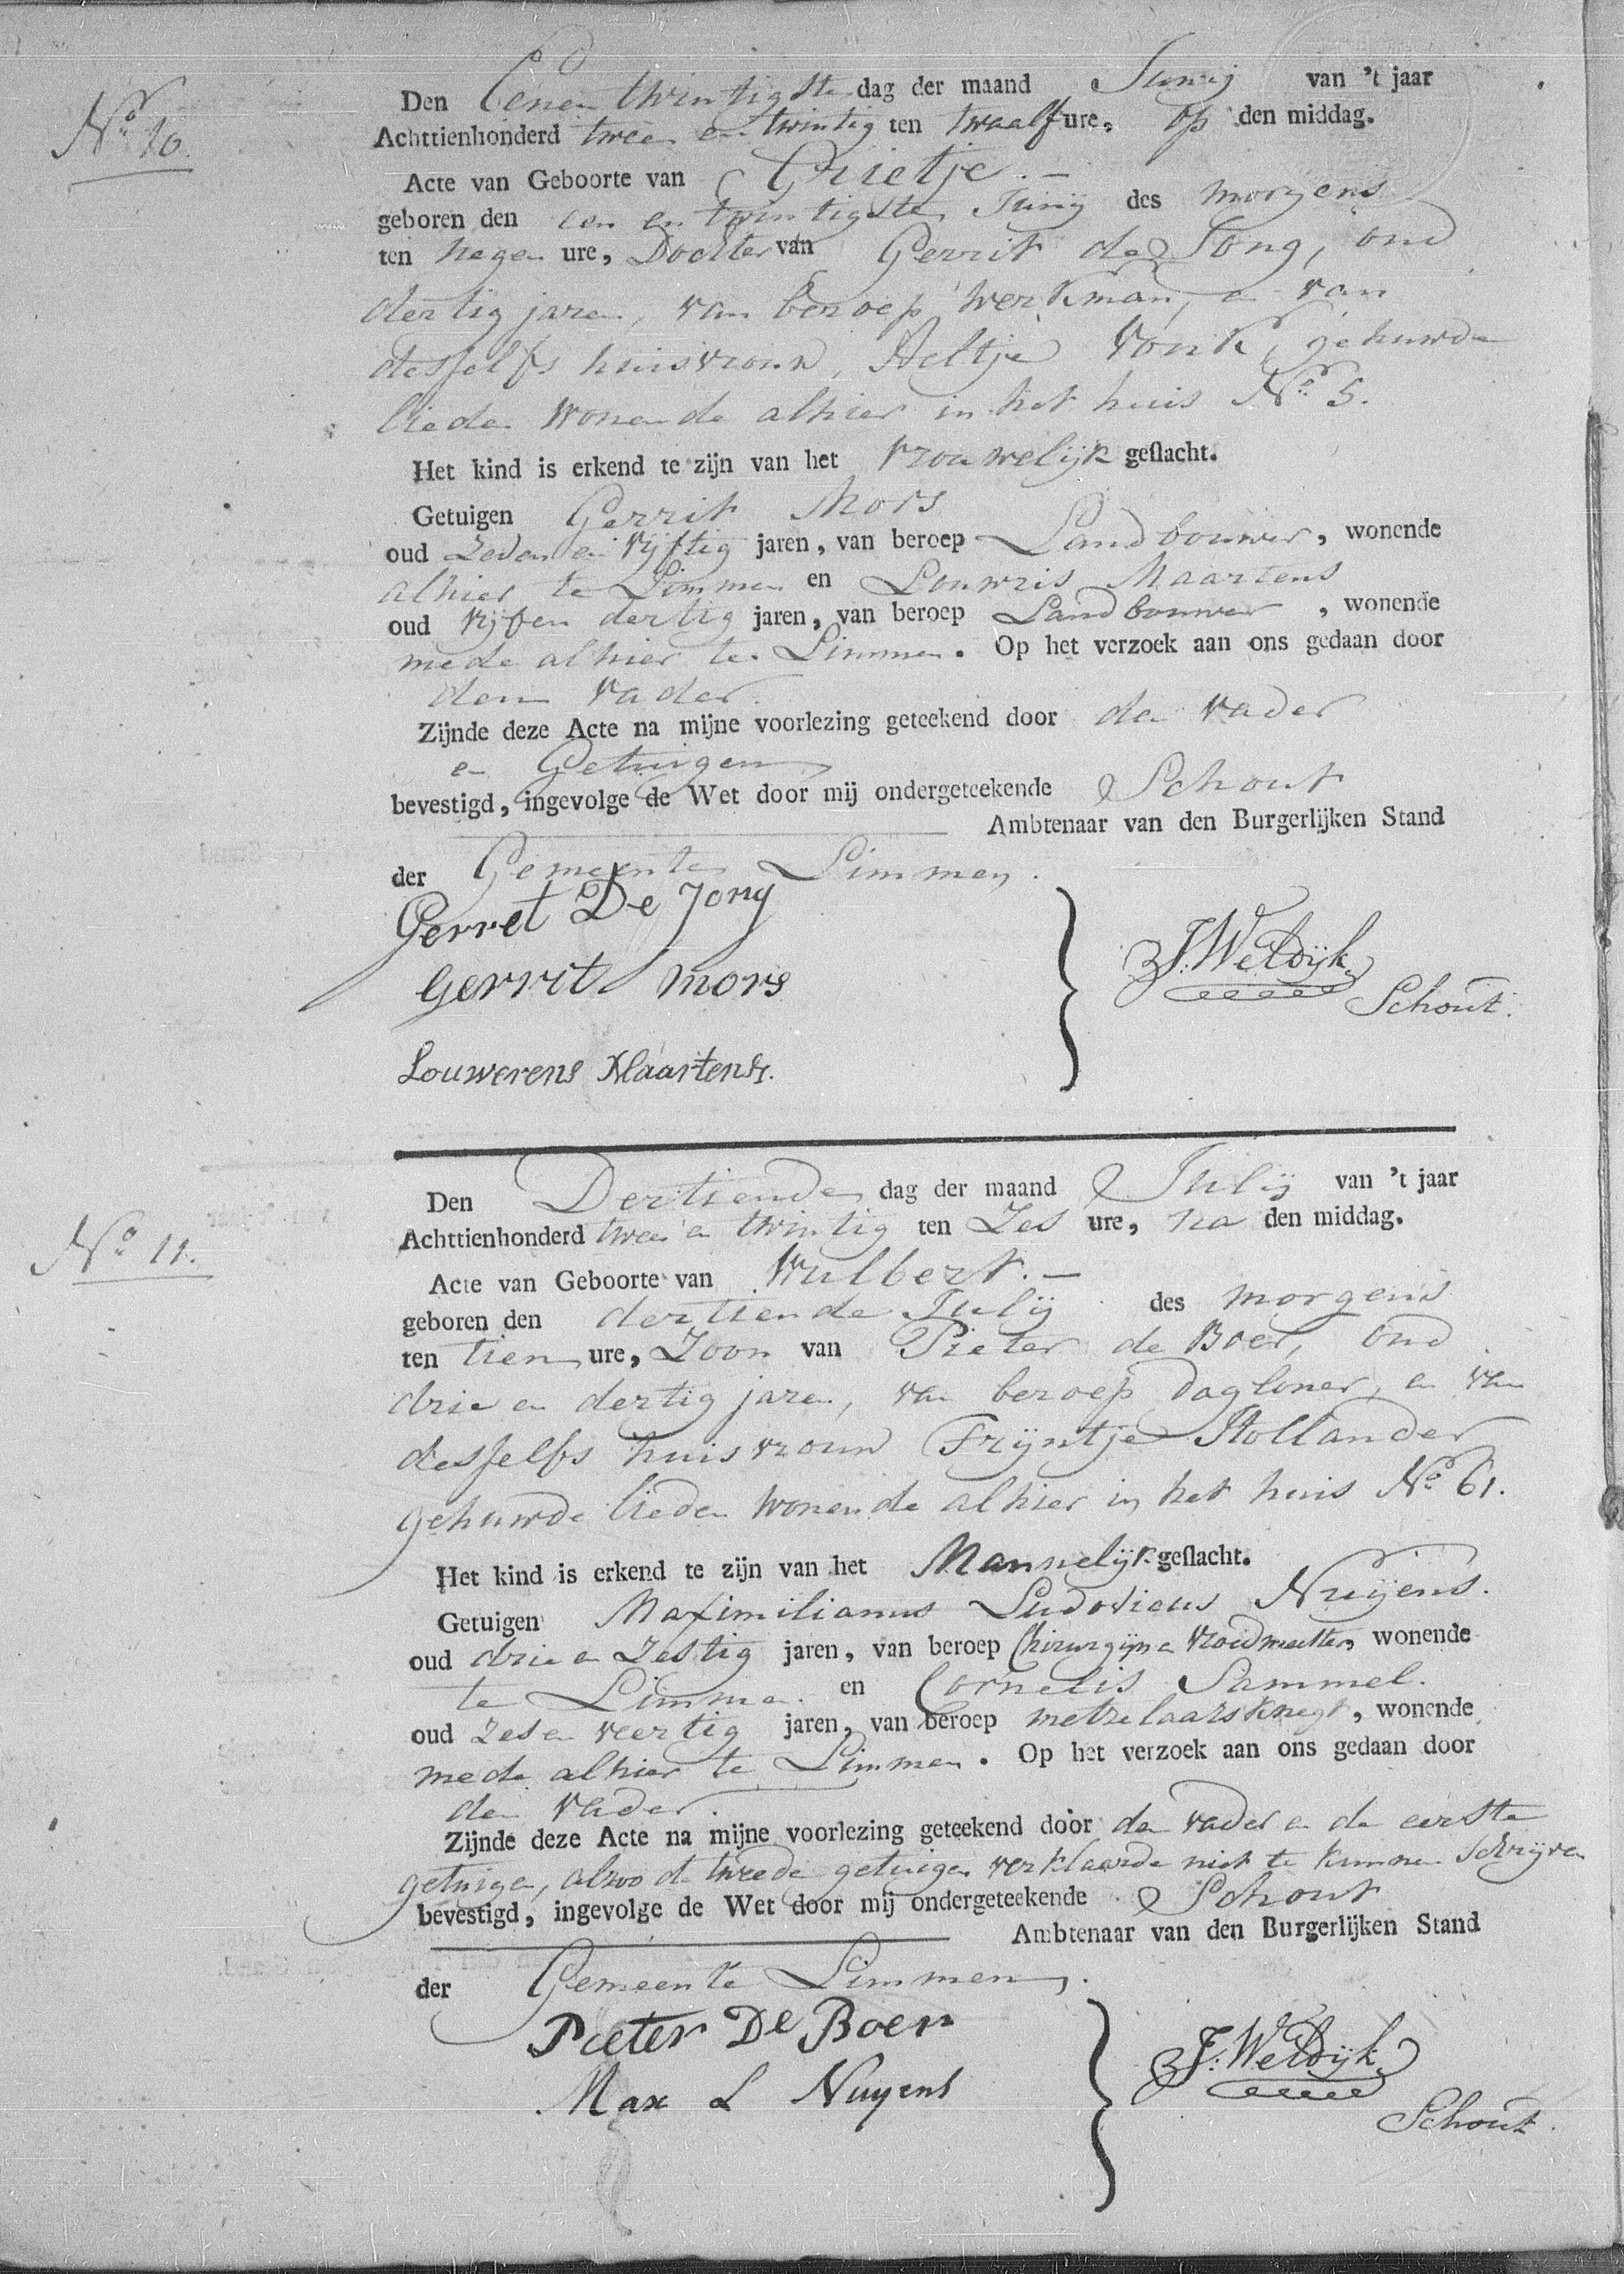 N.o 10.
Den Eenen twintigste dag der maand Junij van 't jaar
Achttienhonderd twee en twintig ten twaalf ure, op den middag.
Acte van Geboorte van Grietje. —
geboren den een en twintigste Junij des morgens
ten negen ure, Dochter van Gerrit de Jong, oud
dertig jaren, van beroep werkman, en van
desselfs huisvrouw, Aeltje Vonk, gehuwde
lieden wonende alhier in het huis N.o 5.
Het kind is erkend te zijn van het vrouwelijk geslacht.
Getuigen Gerrit Mors
oud Zeven en vijftig jaren, van beroep Landbouwer, wonende
alhier te Limmen en Louwris Maartens
oud vijf en dertig jaren, van beroep Landbouwer, wonende
mede alhier te Limmen. Op het verzoek aan ons gedaan door
den vader.
Zijnde deze Acte na mijne voorlezing geteekend door den vader
en Getuigen
bevestigd, ingevolge de Wet door mij ondergeteekende Schout
Ambtenaar van den Burgerlijken Stand
der Gemeente Limmen.
Gerret De Jong
Gerrit mors
Louwerens Maartens.
J: Weldijk
Schout.
N.o 11.
Den Dertiende dag der maand Julij van 't jaar
Achttienhonderd twee en twintig ten Zes ure, na den middag.
Acte van Geboorte van Wulbert. —
geboren den dertiende Julij des morgens
ten tien ure, Zoon van Pieter de Boer, oud
drie en dertig jaren, van beroep dagloner, en van
desselfs huisvrouw Trijntje Hollander
gehuwde lieden wonende alhier in het huis N.o 61.
Het kind is erkend te zijn van het Mannelijk geslacht.
Getuigen Maximilianus Ludovicus Nuijens.
oud drie en Zestig jaren, van beroep Chirurgijn en vroedmeester, wonende
te Limmen. en Cornelis Sammel.
oud Zes en veertig jaren, van beroep metzelaarsknegt, wonende
mede alhier te Limmen. Op het verzoek aan ons gedaan door
den vader.
Zijnde deze Acte na mijne voorlezing geteekend door den vader en de eerste
getuigen, alzoo de tweede getuigen verklaarde niet te kunnen schrijven
bevestigd, ingevolge de Wet door mij ondergeteekende Schout
Ambtenaar van den Burgerlijken Stand
der Gemeente Limmen.
Pieter De Boer
Max L Nuyens
J: Weldijk
Schout.